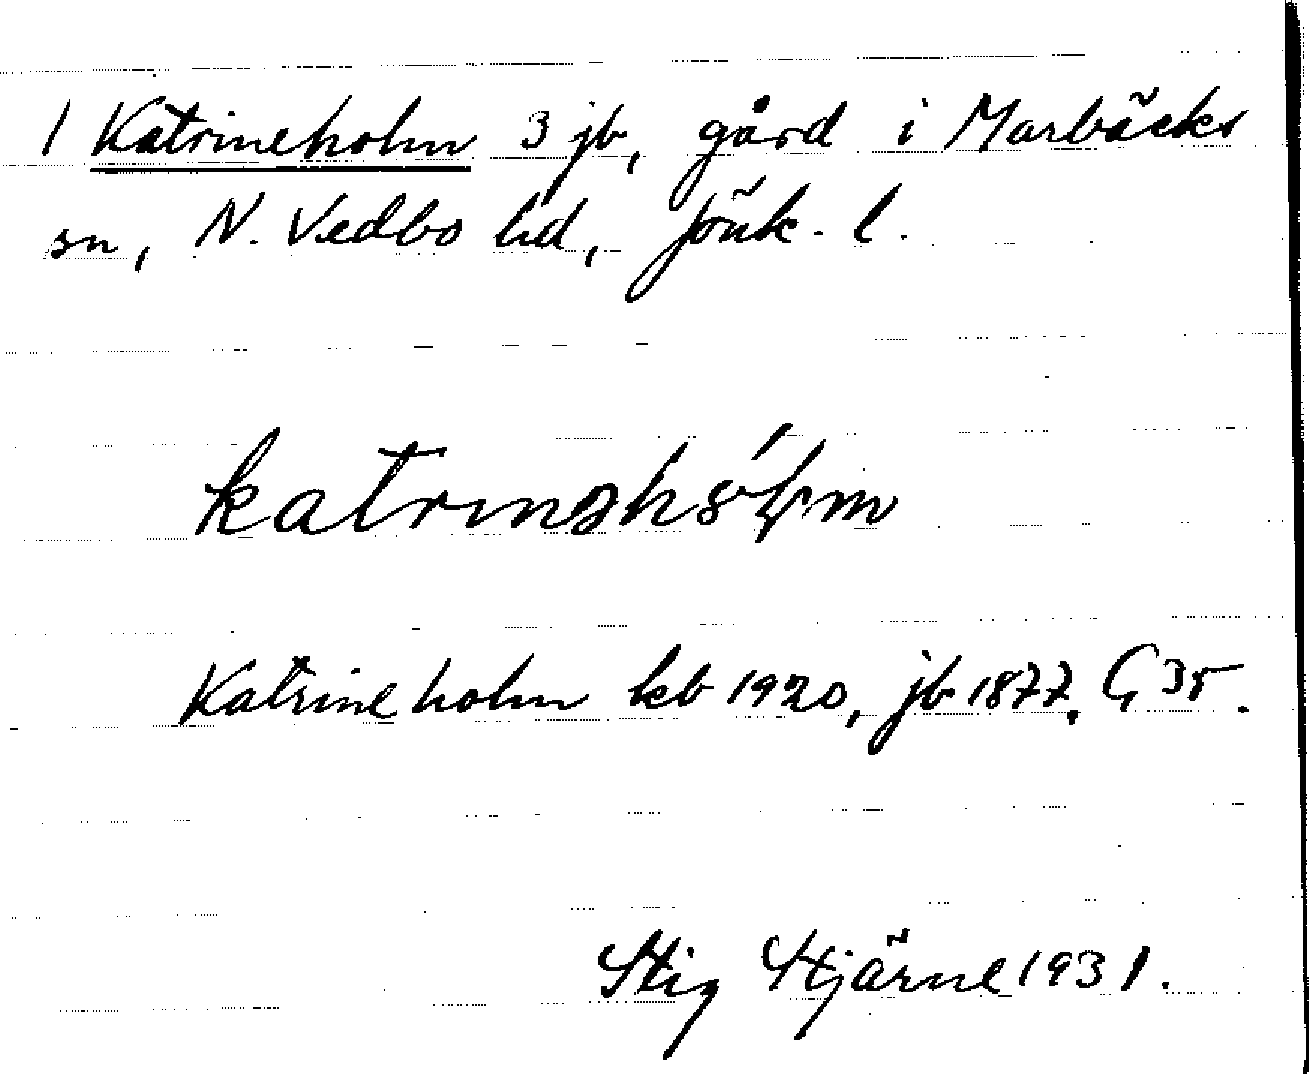 1 Katrineholm 3 jb, gård i Marbäcks
sn, N. Vedbo hd, Jönk. l.
katrinəh
Katrineholm kb 1920, jb 1877, G 35.
Stig Hjärne 1931.